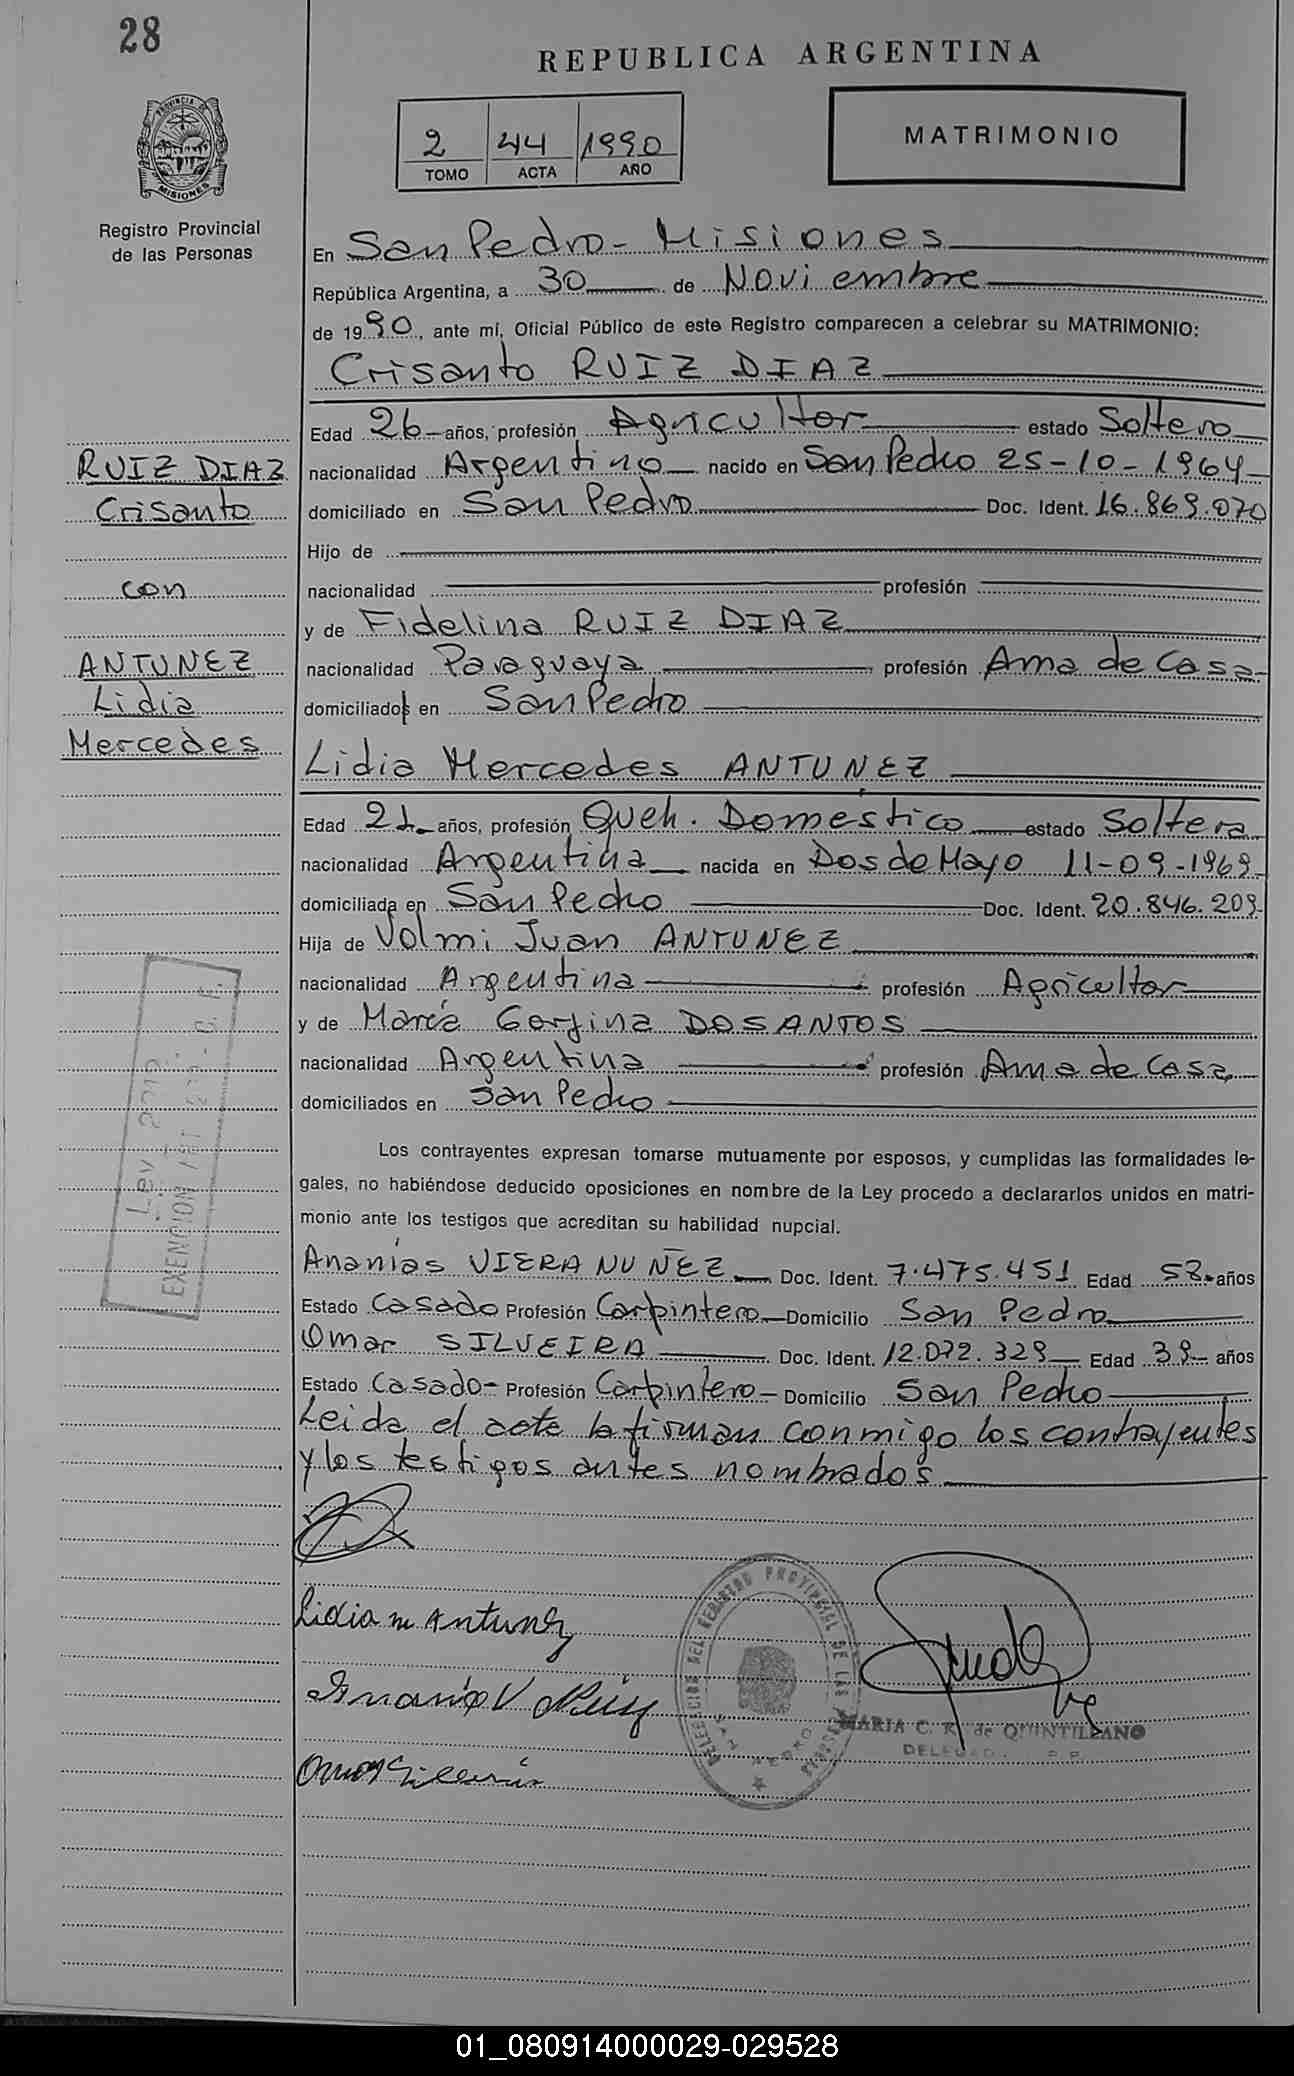 28
REPUBLICA ARGENTINA
2 44 1990
TOMO ACTA AÑO
MATRIMONIO
PROVINCIA DE
MISIONES
Registro Provincial
de las Personas
En San Pedro - Misiones
República Argentina, a 30 de Noviembre
de 1990, ante mí, Oficial Público de este Registro comparecen a celebrar su MATRIMONIO:
Crisanto RUIZ DIAZ
Edad 26 años, profesión Agricultor estado Soltero
nacionalidad Argentino nacido en San Pedro 25-10-1964
domiciliado en San Pedro Doc. Ident. 16.869.070
Hijo de
nacionalidad profesión
y de Fidelina RUIZ DIAZ
nacionalidad Paraguaya profesión Ama de Casa
domiciliados en San Pedro
RUIZ DIAZ
Crisanto
con
ANTUNEZ
Lidia
Mercedes
Lidia Mercedes ANTUNEZ
Edad 21 años, profesión Queh. Domestico estado Soltera
nacionalidad Argentina nacida en Dos de Mayo 11-09-1969
domiciliada en San Pedro Doc. Ident. 20.846.209
Hija de Volmi Juan ANTUNEZ
nacionalidad Argentina profesión Agricultor
y de María DOSANTOS
nacionalidad Argentina profesión Ama de Casa
domiciliados en San Pedro
Ley 2010
EXENCION ART
Los contrayentes expresan tomarse mutuamente por esposos, y cumplidas las formalidades le-
gales, no habiéndose deducido oposiciones en nombre de la Ley procedo a declararlos unidos en matri-
monio ante los testigos que acreditan su habilidad nupcial.
Ananías VIERA NUÑEZ Doc. Ident. 7.475.451 Edad 58 años
Estado Casado Profesión Carpintero Domicilio San Pedro
Omar SILVEIRA Doc. Ident. 12.072.329 Edad 39 años
Estado Casado Profesión Carpintero Domicilio San Pedro
Leida el acta la firman conmigo los contrayentes
y los testigos antes nombrados
Lidia M Antunez
DELEGACION DEL REGISTRO PROVINCIAL DE LAS PERSONAS
SAN PEDRO
MARIA C. R. de QUINTILLANO
01_080914000029-029528